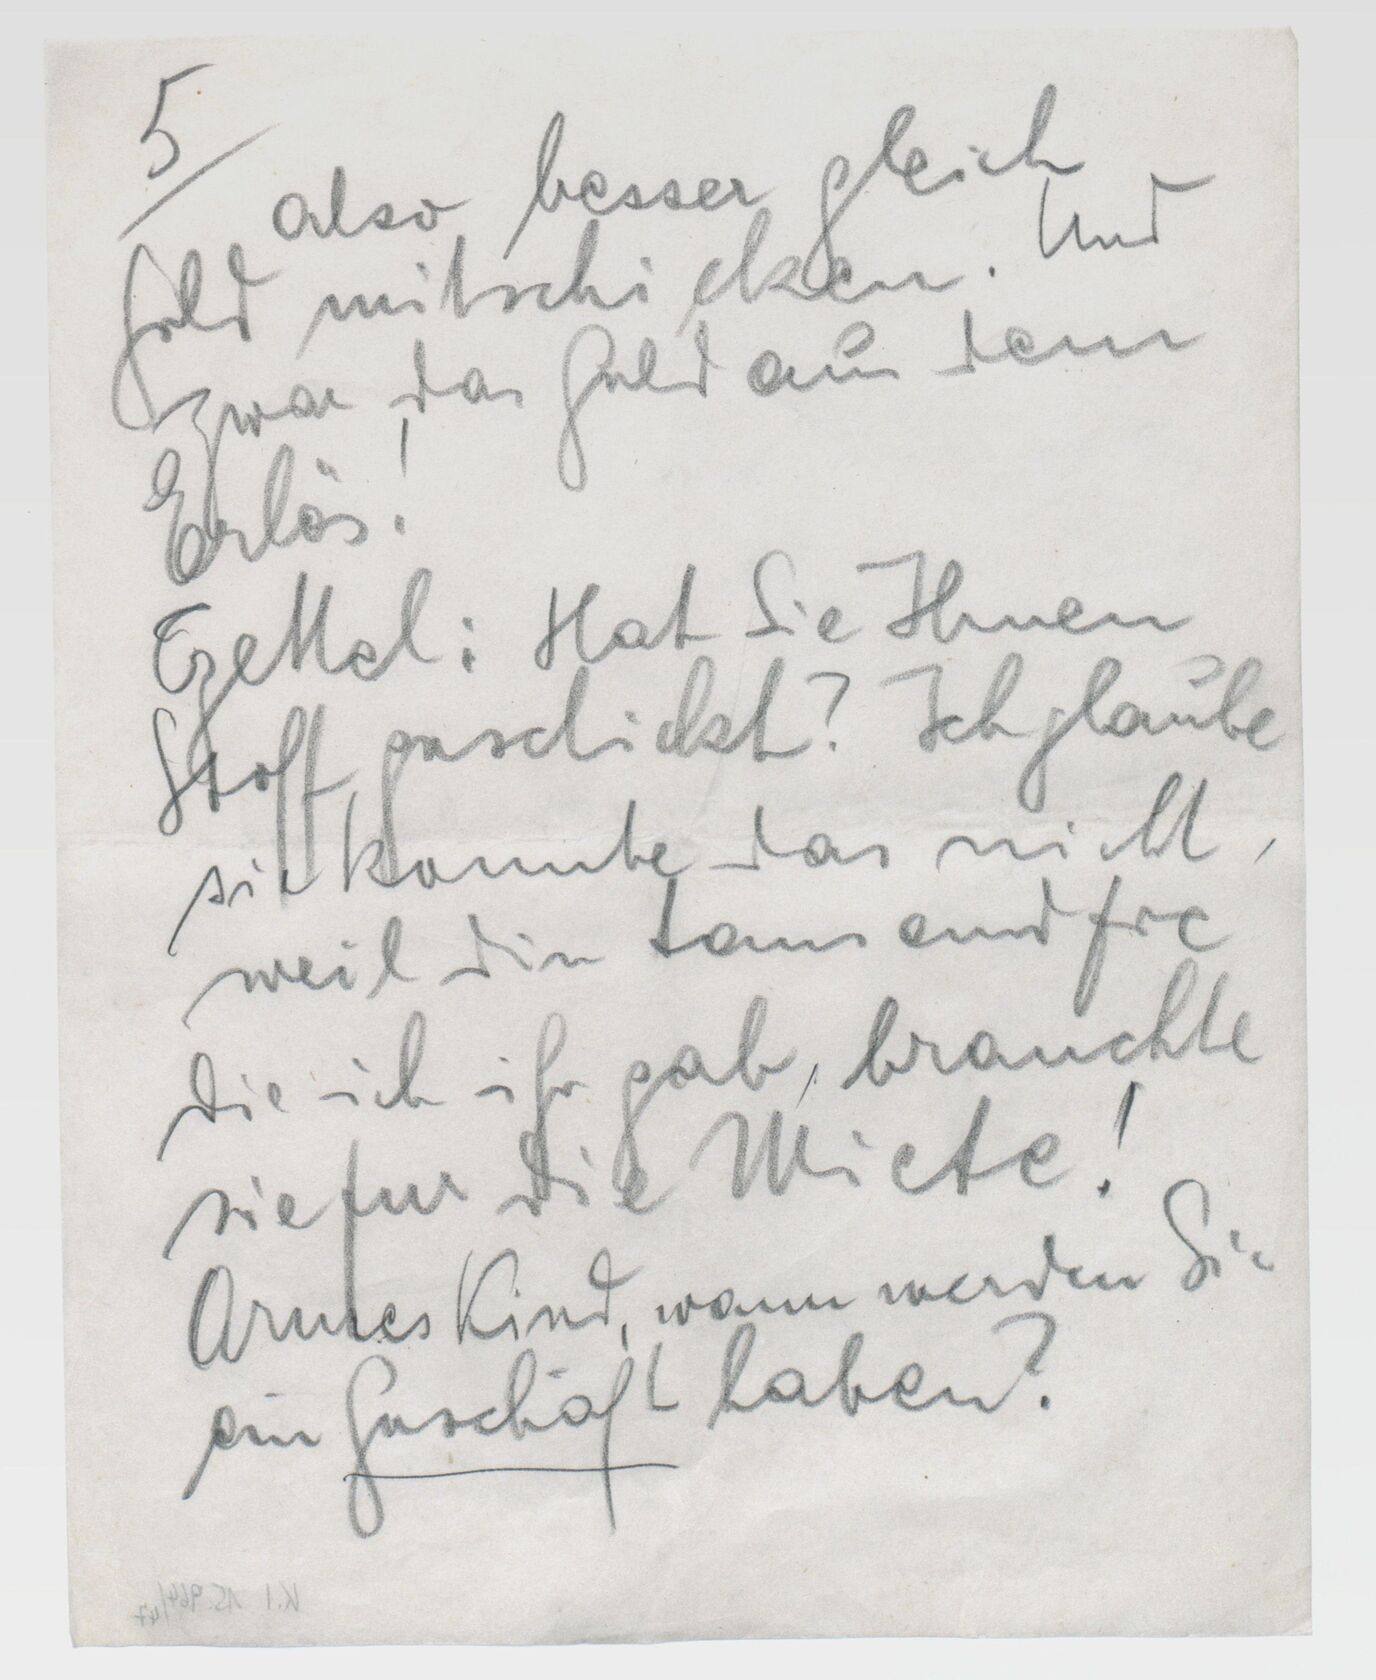 5/
also besser gleich
Geld mitschicken. Und
zwar das Geld aus dem
Erlös!
Ezettel: Hat Sie Ihnen
Stoff geschickt? Ich glaube
sie konnte das nicht,
weil die tausend frc
die ich ihr gab, brauchte
sie fur die Miete!
Armes Kind, wann werden Sie
ein Geschäft haben?
K.I 15.964/47